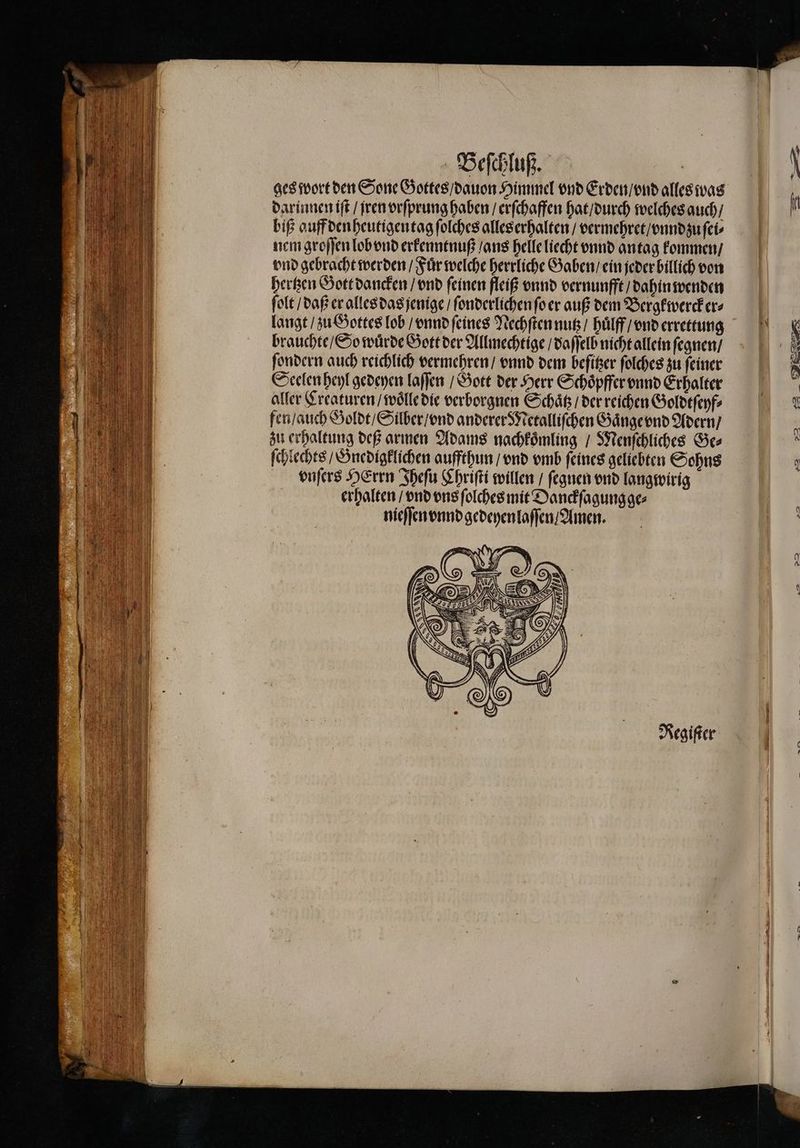 Beſchluß.
ges wort den Sone Gottes / dauon Himmel vnd Erden / vnd alles was
darinnen iſt / jren vrſprung haben / erſchaffen hat / durch welches auch /
biß auff den heutigen tag ſolches alles erhalten / vermehret / vnnd zu ſei⸗
nem groſſen lob vnd erkenntnuß / ans helle liecht vnnd an tag kommen /
vnd gebracht werden / Fuͤr welche herrliche Gaben / ein jeder billich von
hertzen Gott dancken / vnd ſeinen fleiß vnnd vernunfft / dahin wenden
ſolt / daß er alles das jenige / ſonderlichen ſo er auß dem Bergkwerck er⸗
langt / zu Gottes lob / vnnd ſeines Nechſten nutz / huͤlff / vnd errettung
brauchte / So wuͤrde Gott der Allmechtige / daſſelb nicht allein ſegnen /
ſondern auch reichlich vermehren / vnnd dem beſitzer ſolches zu ſeiner
Seelen heyl gedeyen laſſen / Gott der Herr Schoͤpffer vnnd Erhalter
aller Creaturen / woͤlle die verborgnen Schaͤtz / der reichen Goldtſeyf⸗
fen / auch Goldt / Silber / vnd anderer Metalliſchen Gaͤnge vnd Adern /
zu erhaltung deß armen Adams nachkoͤmling / Menſchliches Ge⸗
ſchlechts / Gnedigklichen auffthun / vnd vmb ſeines geliebten Sohns
vnſers HErrn Jheſu Chriſti willen / ſegnen vnd langwirig
erhalten / vnd vns ſolches mit Danckſagung ge⸗
nieſſen vnnd gedeyen laſſen / Amen.
Regiſter